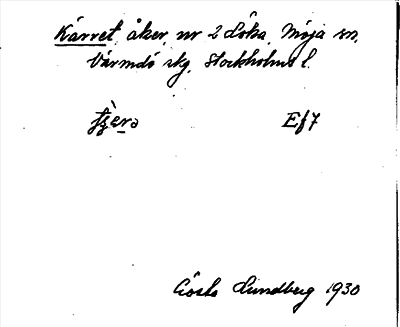 Kärret, åker, nr 2 Löka, Möja sn,
Värmdö skg, Stockholms l.
Ef7
Gösta Lundberg 1930